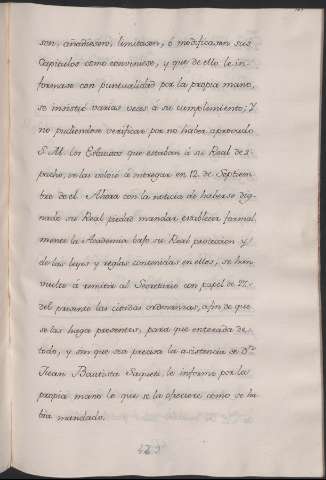 sen, añadiesen, limitasen, ó modificasen sus
Capitulos como conviniese, y que de ello le in-
formase con puntualidad por la propia mano,
se insistió varias veces á su cumplimiento; y
no pudiendose verificar por no haber aprovado
S. M. los Estatutos que estaban á su Real des-
pacho, se los volvió á entregar en 12. de Septiem-
bre de él. Ahora con la noticia de haberse dig-
nado su Real piedad mandar establecer formal-
mente la Academia bajo su Real proteccion y
de las leyes y reglas contenidas en ellos, se han
vuelto á remitir al Secretario con papel de 27.
del presente las citadas ordenanzas, afin de que
se las haga presentes, para que enterada de
todo, y sin que sea precisa la asistencia de Dn.
Juan Bautista Saqueti, le informe por la
propia mano lo que se la ofreciere como se ha
bia mandado.
425